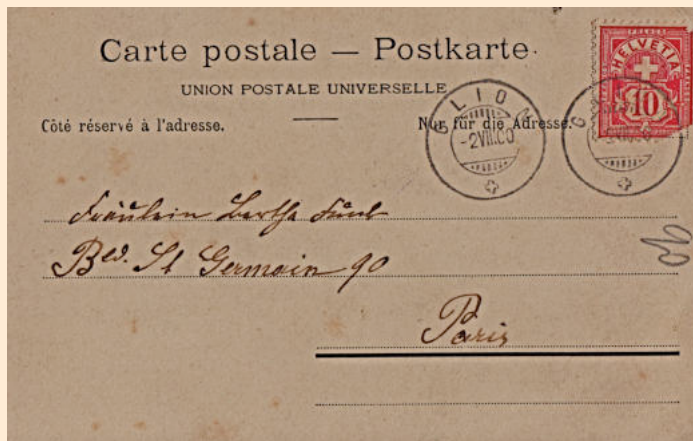 Carte postale — Postkarte.
UNION POSTALE UNIVERSELLE
Côté réservé à l'adresse.
Nur für die Adresse.
HELVETIA
10
GLION
-2VII.00
Fräulein Bertha
Bld. St Germain 90
Paris